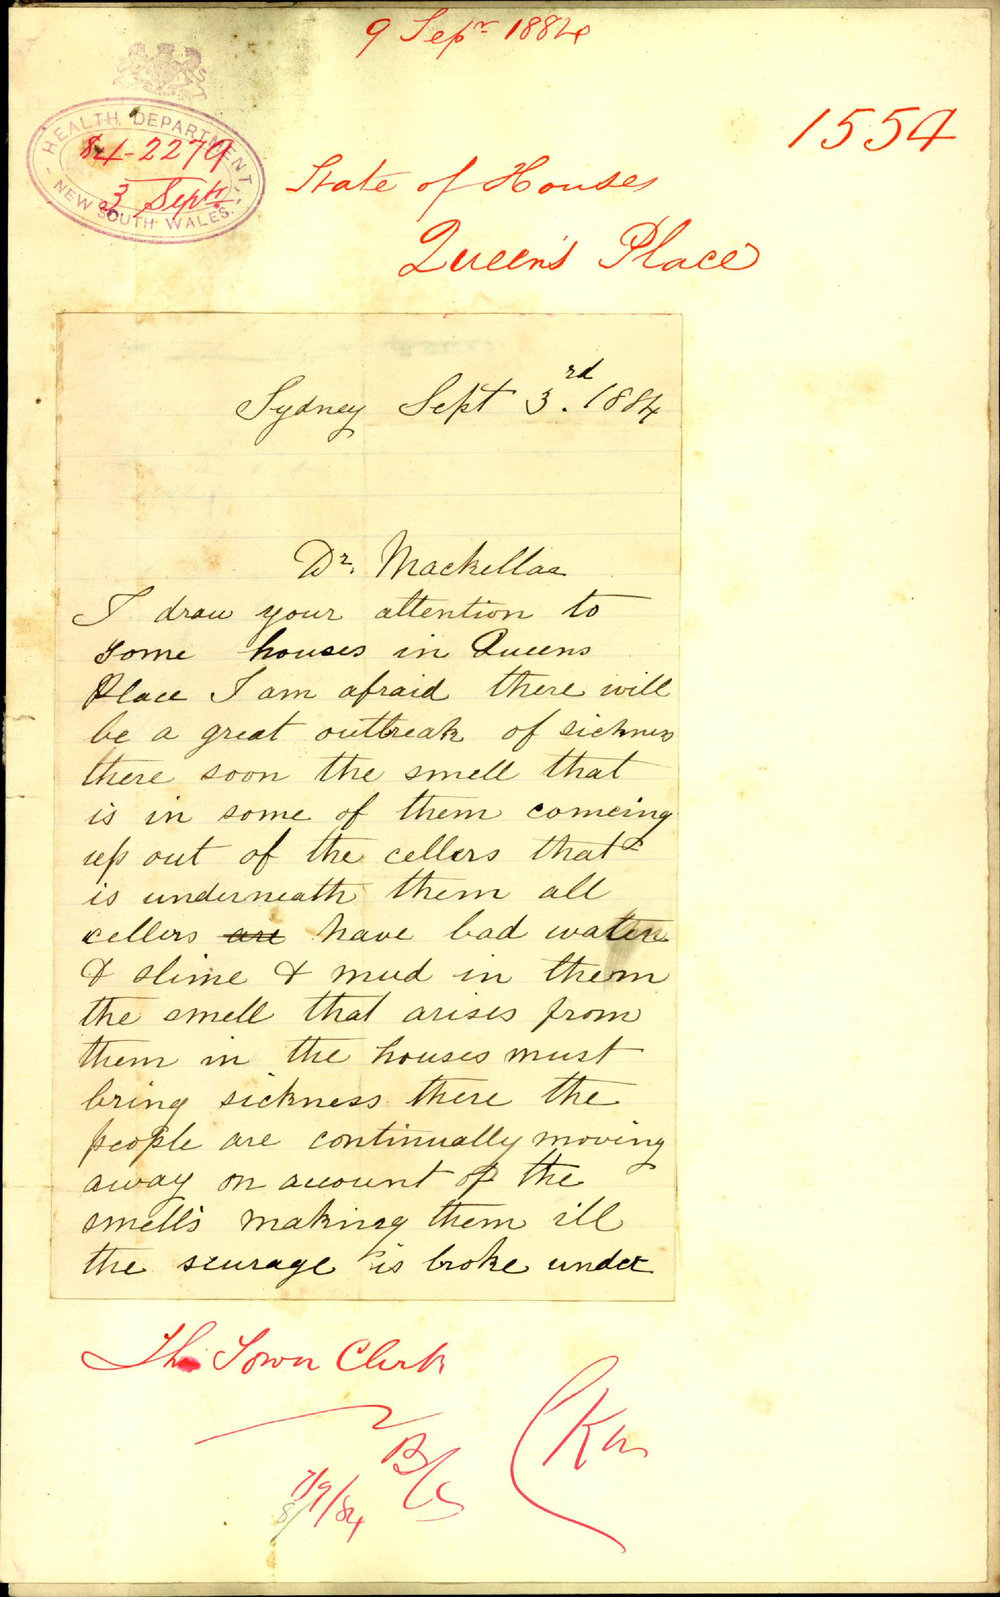 9 Sepr 1884
HEALTH DEPARTMENT
84-2279
3 Sept.
NEW SOUTH WALES.
1554
State of Houses
Queen's Place
Sydney Sept 3rd. 1884
Dr. Mackellar
I draw your attention to
some houses in Queens
Place I am afraid there will
be a great outbreak of sickness
there soon the smell that
is in some of them comeing
up out of the cellers that
is underneath them all
cellers are have bad water
& slime & mud in them
the smell that arises from
them in the houses must
bring sickness there the
people are continually moving
away on account of the
smells making them ill
the seurage is broke under
The Town Clerk
B/C
9/84